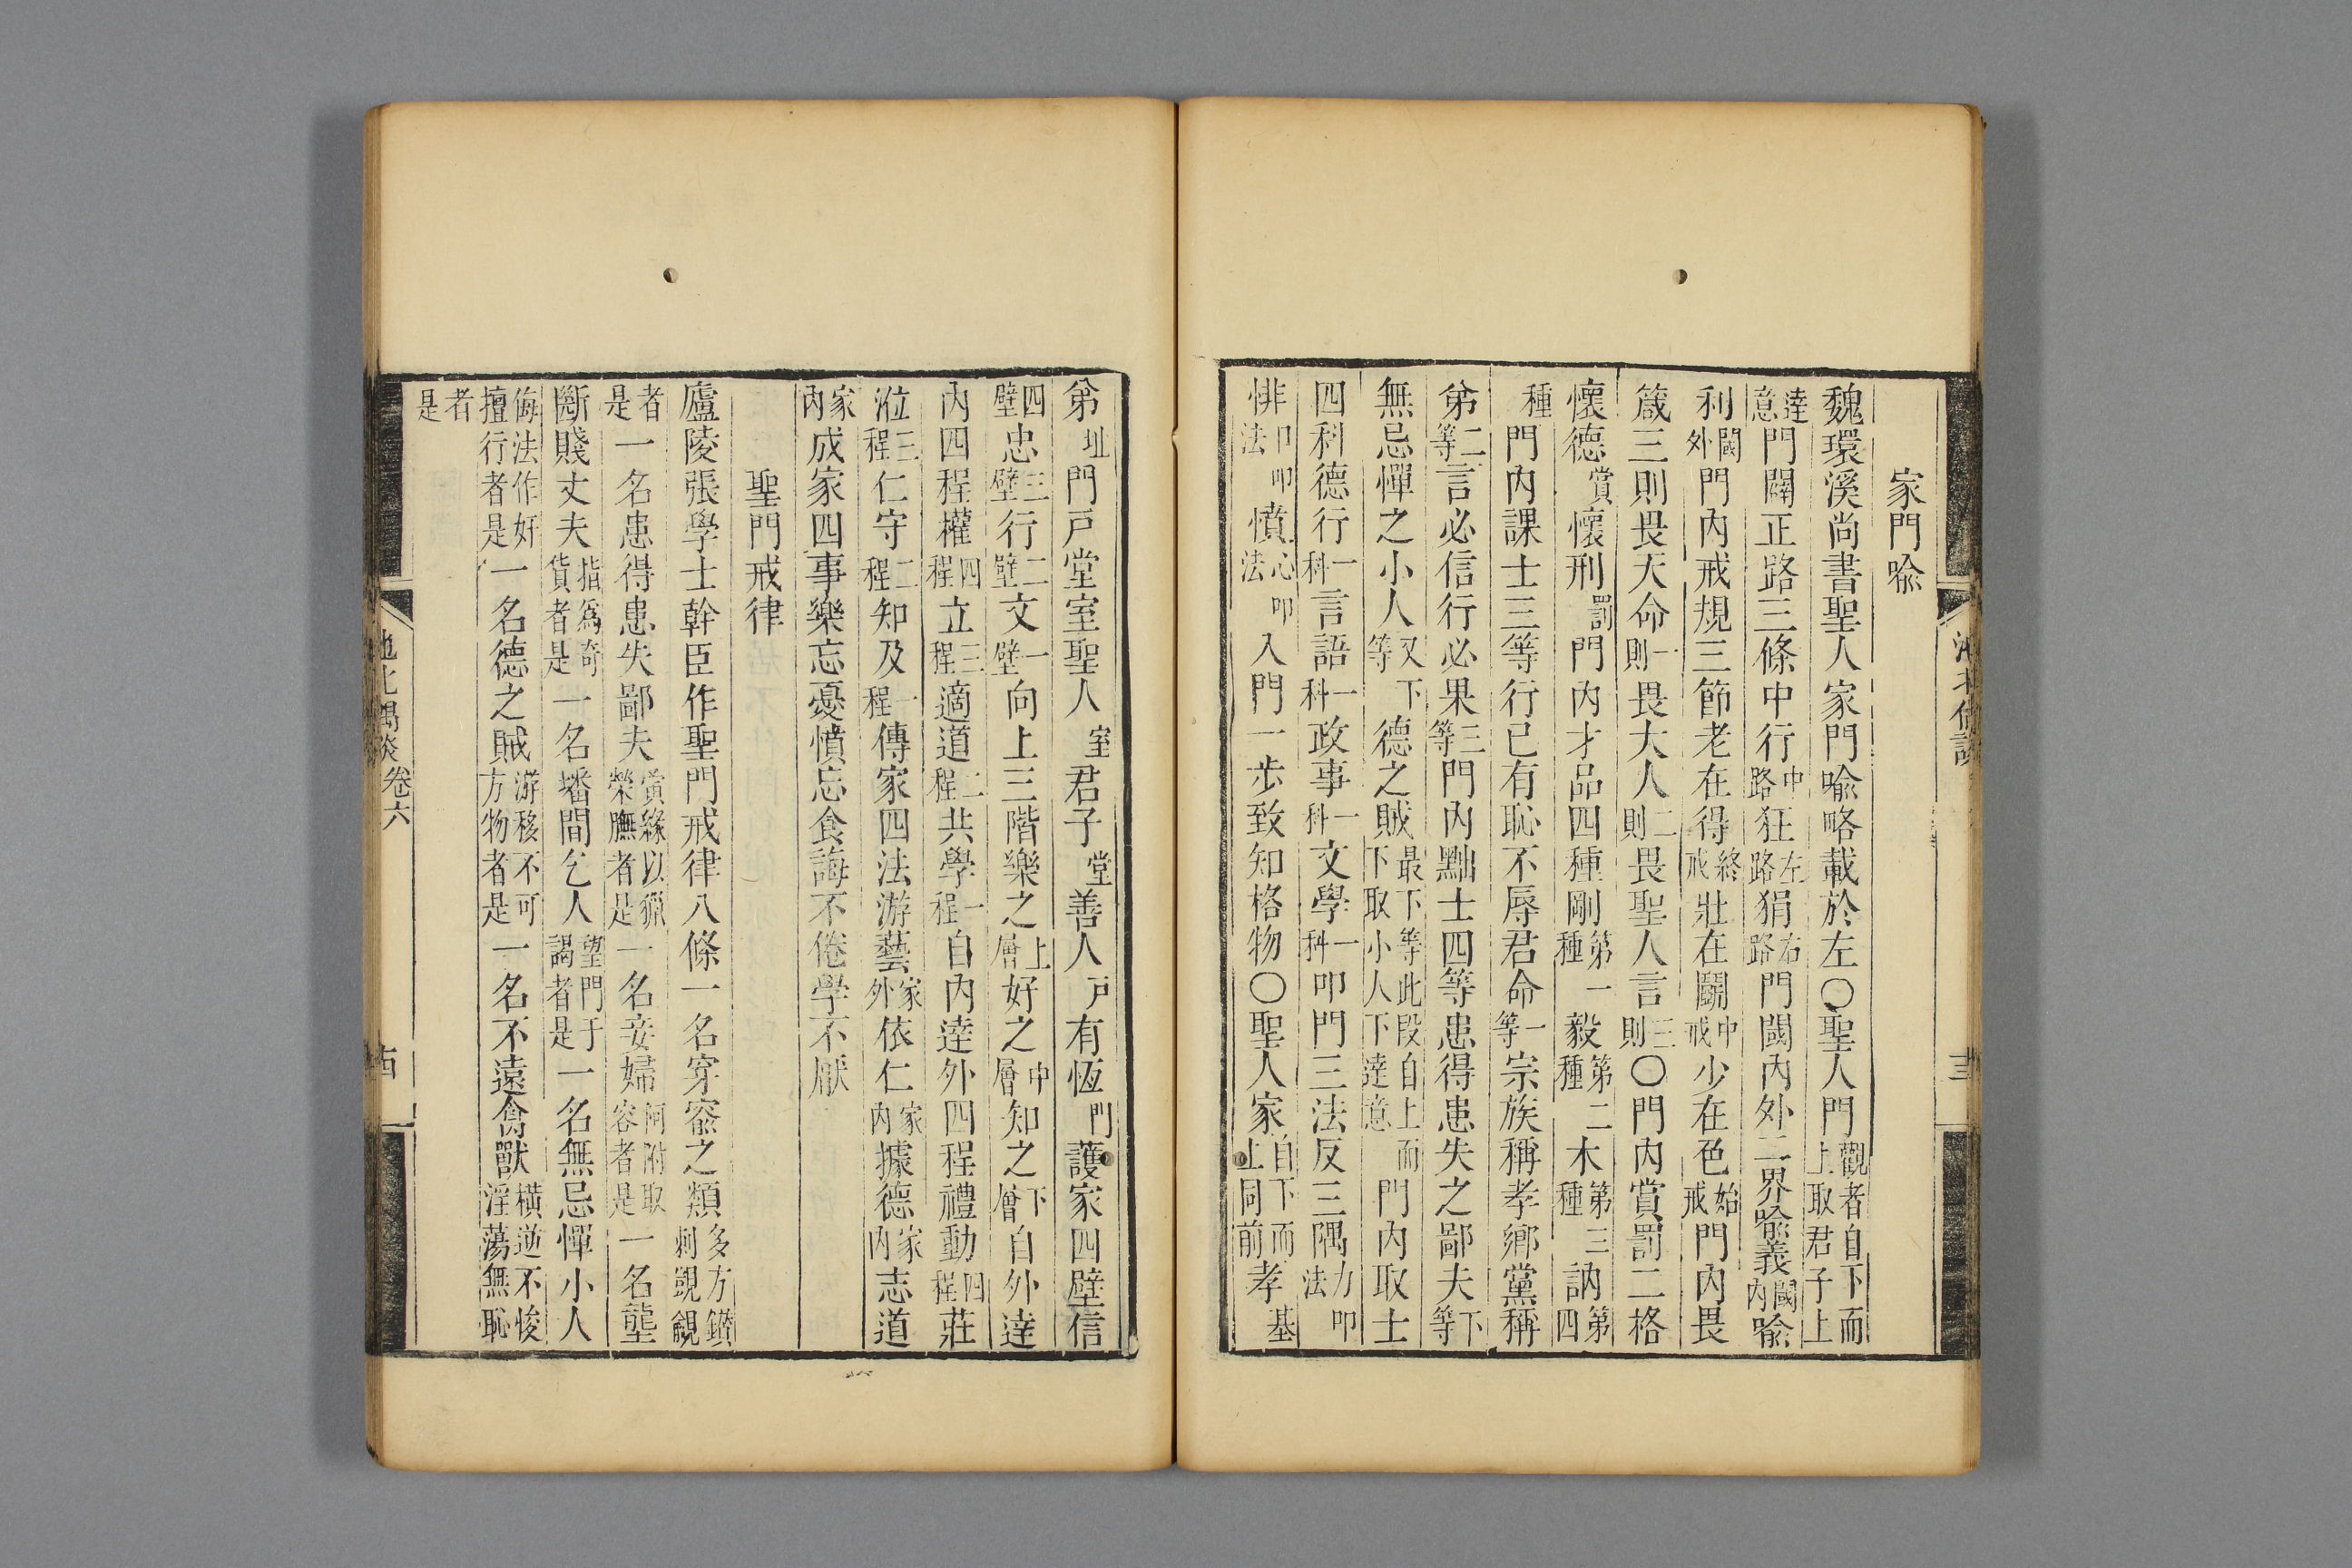 家門喻
魏環溪尚書聖人家門喻略載於左〇聖人門觀者自下而上取君子上
達意門闢正路三條中行中路狂左路狷右路門閾內外二界喻義閾內喻
利閾外門內戒規三節老在得終戒壯在鬭中戒少在色始戒門內畏
箴三則畏天命一則畏大人二則畏聖人言三則〇門內賞罰二格
懷德賞懷刑罰門內才品四種剛第一種毅第二種木第三種訥第四
種門內課士三等行已有恥不辱君命一等宗族稱孝鄉黨稱
弟二等言必信行必果三等門內黜士四等患得患失之鄙夫下等
無忌憚之小人又下等德之賊最下等此段自上而下取小人下達意門內取士
四科德行一科言語一科政事一科文學一科叩門三法反三隅力叩法
悱口叩法憤心叩法入門一步致知格物〇聖人家自下而上同前孝基
弟址門戸堂室聖人室君子堂善人戸有恆門護家四壁信
四壁忠三壁行二壁文一壁向上三階樂之上層好之中層知之下層自外達
內四程權四程立三程適道二程共學一程自內達外四程禮動四程莊
涖三程仁守二程知及一程傳家四法游藝家外依仁家內據德家內志道
家內成家四事樂忘憂憤忘食誨不倦學不厭
聖門戒律
廬陵張學士幹臣作聖門戒律八條一名穿窬之類多方鑚刺覬覦
者是一名患得患失鄙夫夤緣以獵榮膴者是一名妾婦阿附取容者是一名壟
斷賤丈夫指爲奇貨者是一名墦間乞人望門干謁者是一名無忌憚小人
侮法作奸擅行者是一名德之賊游移不可方物者是一名不遠禽獸橫逆不悛淫蕩無恥
者是
池北偶談 卷六